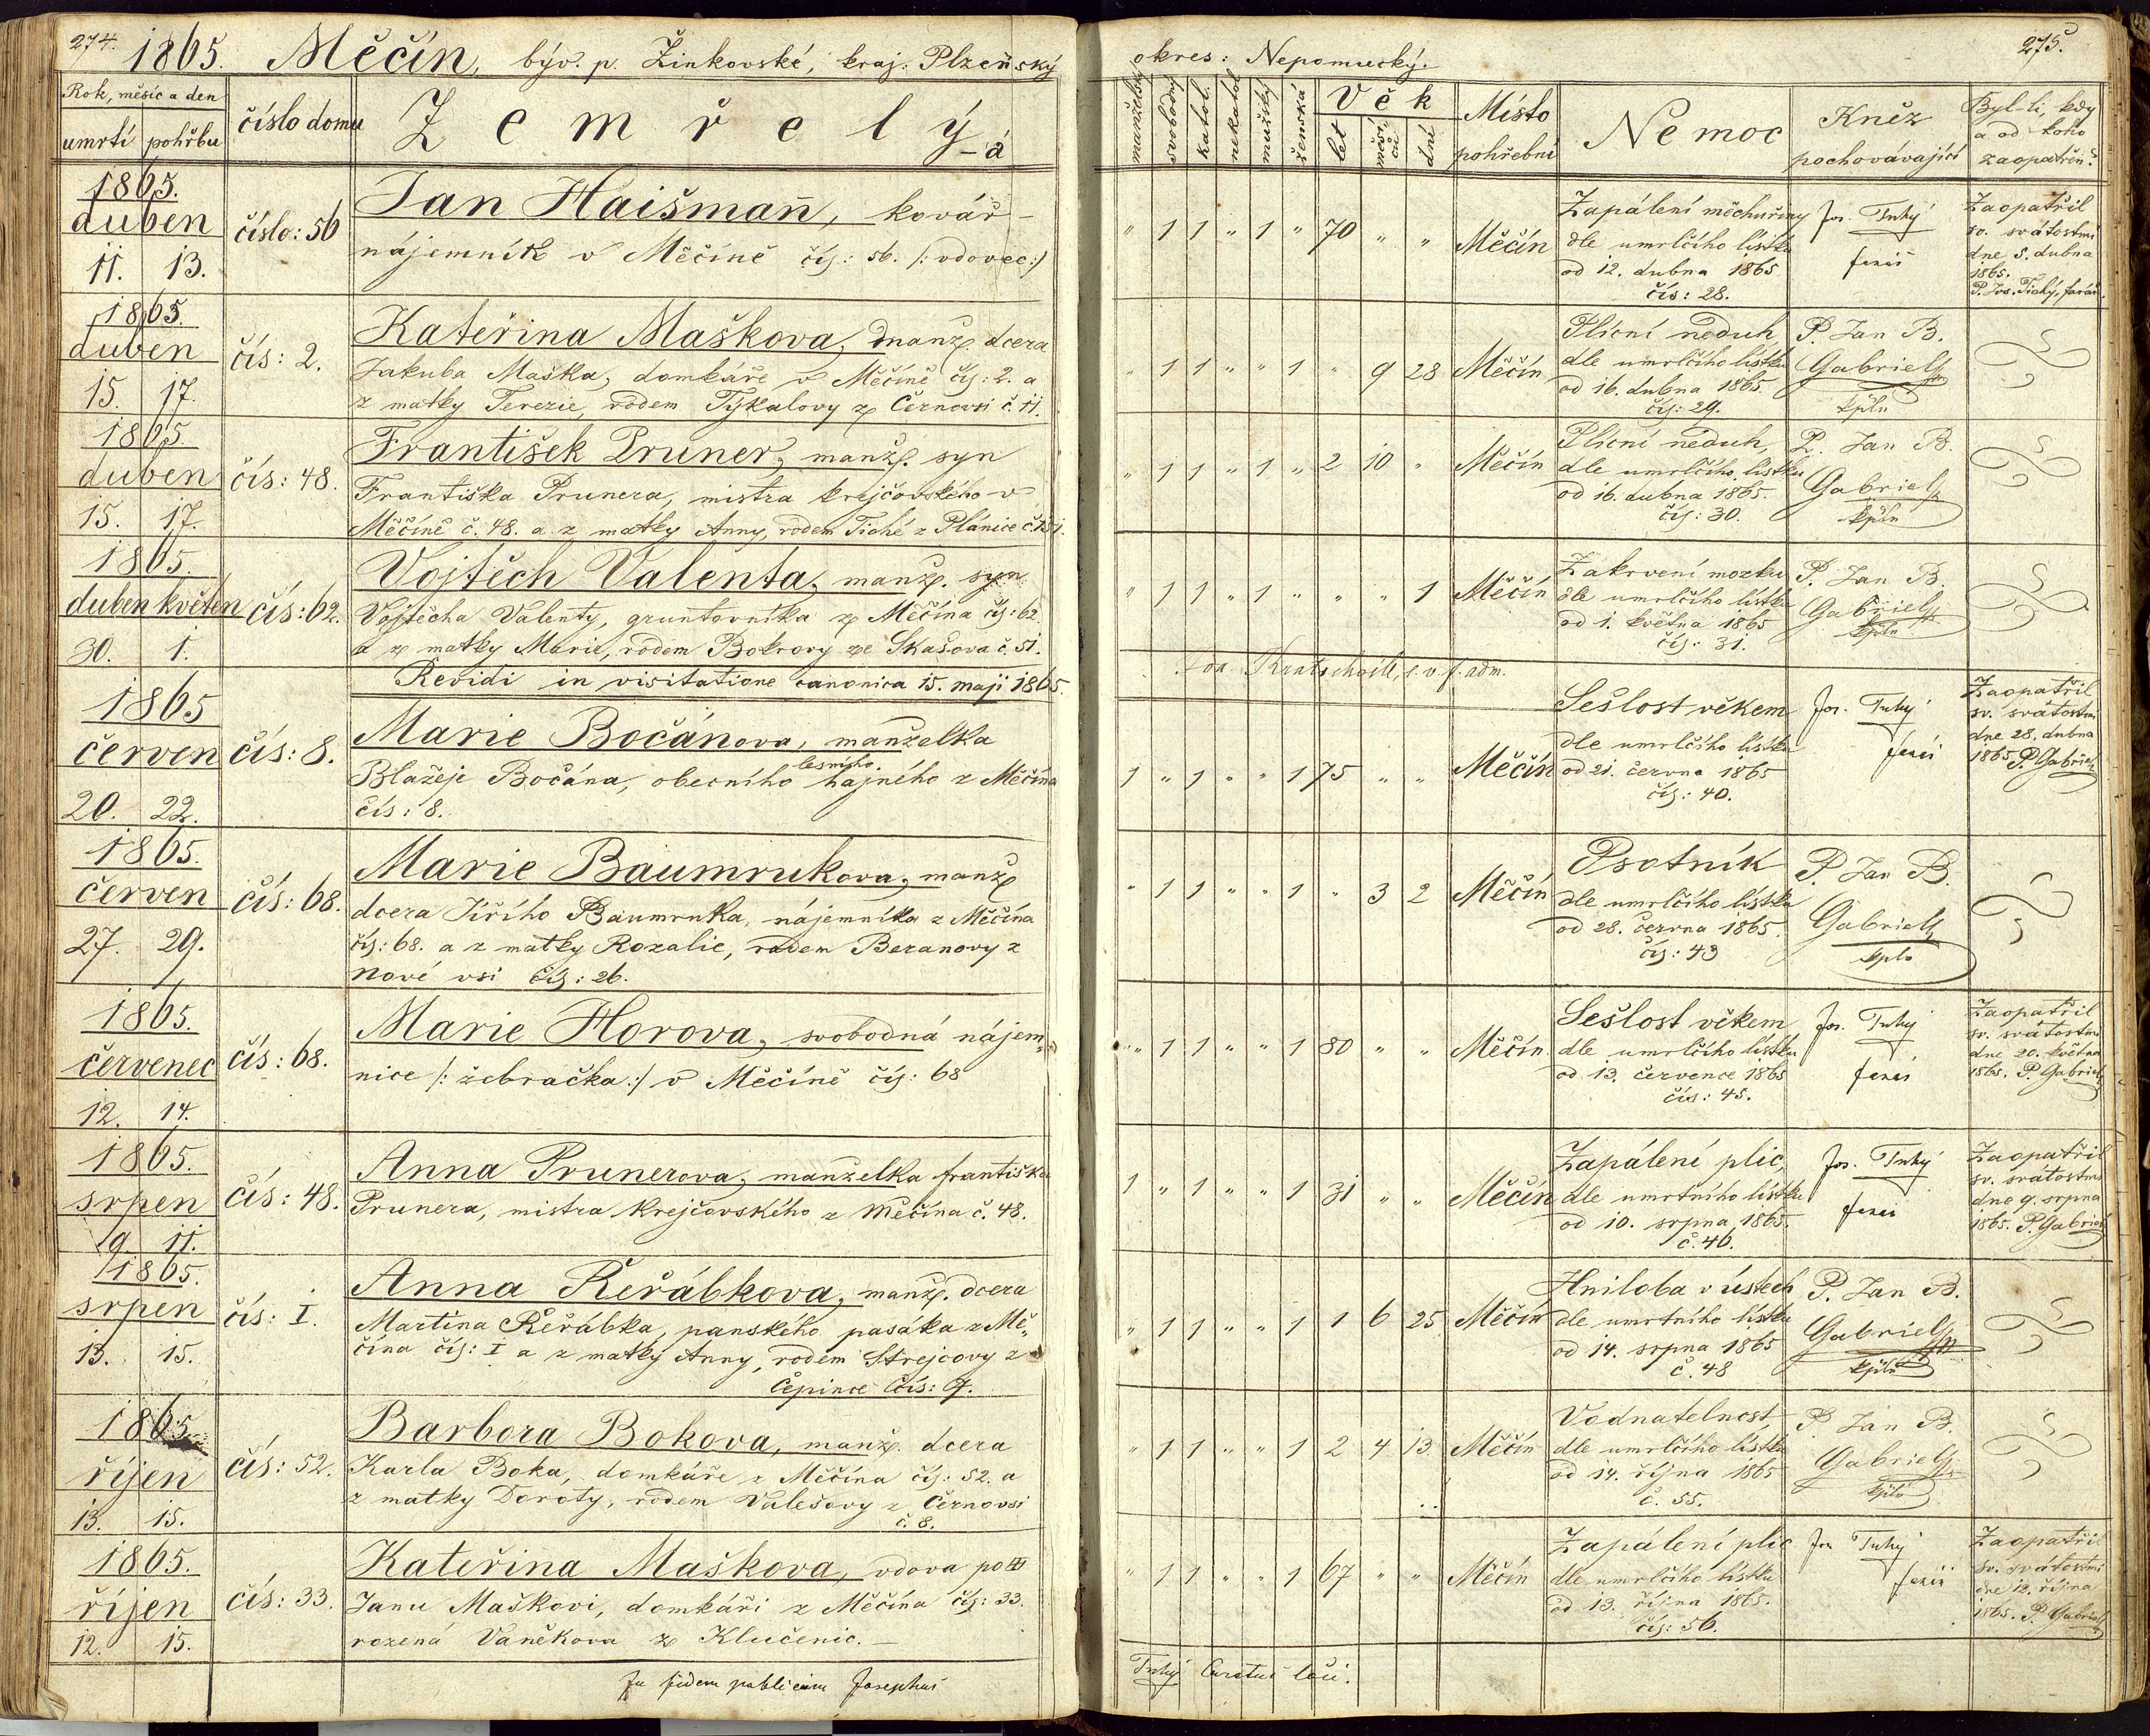 274.
1865. Měčín, býv. p. Žinkovské, kraj: Plzeňský
Rok, měsíc a den
umrtí pohřbu
číslo domu
Zemřelý -á
1865.
duben
11. 13.
číslo: 56
Jan Haišmañ, kovář -
nájemník v Měčíně čís: 56. /: vdovec :/
1865.
duben
15. 17.
čís: 2.
Kateřina Maškova, manž. dcera
Jakuba Maška, domkáře v Měčíně čís: 2. a
z matky Terezie, rodem Týkalovy z Černovsi č. 11.
1865.
duben
15. 17.
čís: 48.
František Pruner, manž. syn
Františka Prunera, mistra krejčovského v
Měčíně č. 48. a z matky Anny, rodem Tiché z Plánice č. 151.
1865.
duben květen
30. 1.
čís: 62.
Vojtěch Valenta, manž. syn
Vojtěcha Valenty, gruntovníka z Měčína čís: 62.
a z matky Marie, rodem Bokrovy ze Skašova č. 51.
Revidi in visitatione canonica 15. maji 1865.
1865
červen
20. 22.
čís: 8.
Marie Bočánova, manželka
lesního
Blažeje Bočána, obecního hajného z Měčína
čís: 8.
1865.
červen
27. 29.
čís: 68.
Marie Baumrukova, manž
dcera Jiřího Baumruka, nájemníka z Měčína
čís: 68. a z matky Rozalie, rodem Beranovy z
Nové vsi čís: 26.
1865.
červenec
12. 14.
čís: 68.
Marie Horova, svobodná nájem-
nice /: žebračka :/ v Měčíně čís: 68
1865.
srpen
9 11.
čís: 48.
Anna Prunerova, manželka františka
Prunera, mistra krejčovského z Měčína č. 48.
1865.
srpen
13. 15.
čís: I.
Anna Řeřábkova, manž. dcera
Martina Řeřábka, panského pasáka z Mě-
čína čís: I a z matky Anny, rodem Strejcovy z
Čepince čís: 7.
1865
říjen
13. 15.
čís: 52.
Barbora Bokova, manž. dcera
Karla Boka, domkáře z Měčína čís: 52. a
z matky Doroty, rodem Valešovy z Černovsi
č. 8.
1865.
říjen
12. 15.
čís: 33.
Kateřina Maškova, vdova po
Janu Maškovi, domkáři z Měčína čís: 33.
rozená Vaněkova z Klučenic.
In fidem publicam Josephus
okres: Nepomucký.
275.
manželský
svobodný
katol.
nekatol
mužský
ženská
Věk
let
měsíců
dní
Místo
pohřební
Nemoc
Kněz
pochovávající
Byl-li, kdy
a od koho
zaopatřen?
" 1 1 " 1 " 70 " "
Měčín
Zapálení měchuřiny
dle umrlčího lístku
od 12. dubna 1865
čís: 28.
Jos. Tuhý
Zaopatřil
sv. svátostmi
dne 5. dubna
1865.
" 1 1 " " 1 " 9 28
Měčín
Plicní neduh
dle umrlčího lístku
od 16. dubna 1865
čís: 29.
P. Jan B.
Gabriel
kpln
" 1 1 " 1 " 2 10 "
Měčín
Plicní neduh,
dle umrlčího lístku
od 16. dubna 1865.
čís: 30.
P. Jan B.
Gabriel
kpln
" 1 1 " 1 " " " 1
Měčín
Zakrvení mozku
dle umrlčího lístku
od 1. května 1865
čís: 31.
P. Jan B.
Gabriel
kpln
1 " 1 " " 1 75 " "
Měčín
Sešlost věkem
dle umrlčího lístku
od 21. června 1865
čís: 40.
Jos. Tuhý
Zaopatřil
sv. svátostmi
dne 28. dubna
1865 P. Gabriel
" 1 1 " " 1 " 3 2
Měčín
Psotník
dle umrlčího lístku
od 28. června 1865.
čís: 43
P. Jan B.
Gabriel
kpln
" 1 1 " " 1 80 " "
Měčín
Sešlost věkem
dle umrlčího lístku
od 13. července 1865
čís: 45.
Jos. Tuhý
Zaopatřil
sv. svátostmi
dne 20. května
1865. P. Gabriel
1 " 1 " " 1 31 " "
Měčín
Zapálení plic,
dle umrtního lístku
od 10. srpna 1865.
č. 46.
Jos. Tuhý
Zaopatřil
sv. svátostmi
dne 9. srpna
1865. P. Gabriel
" 1 1 " " 1 1 6 25
Měčín
Hniloba v ústech
dle umrtního lístku
od 14. srpna 1865
č. 48
P. Jan B.
Gabriel
kpln
" 1 1 " " 1 2 4 13.
Měčín
Vodnatelnost
dle umrlčího lístku
od 14. října 1865
č. 55.
P. Jan B.
Gabriel
kpln
" 1 1 " " 1 67 " "
Měčín
Zapálení plic
dle umrlčího lístku
od 13. října 1865.
čís: 56.
Jos Tuhý
Zaopatřil
sv. svátostmi
dne 12. října
1865. P. Gabriel
Tuhý Curatus loci.